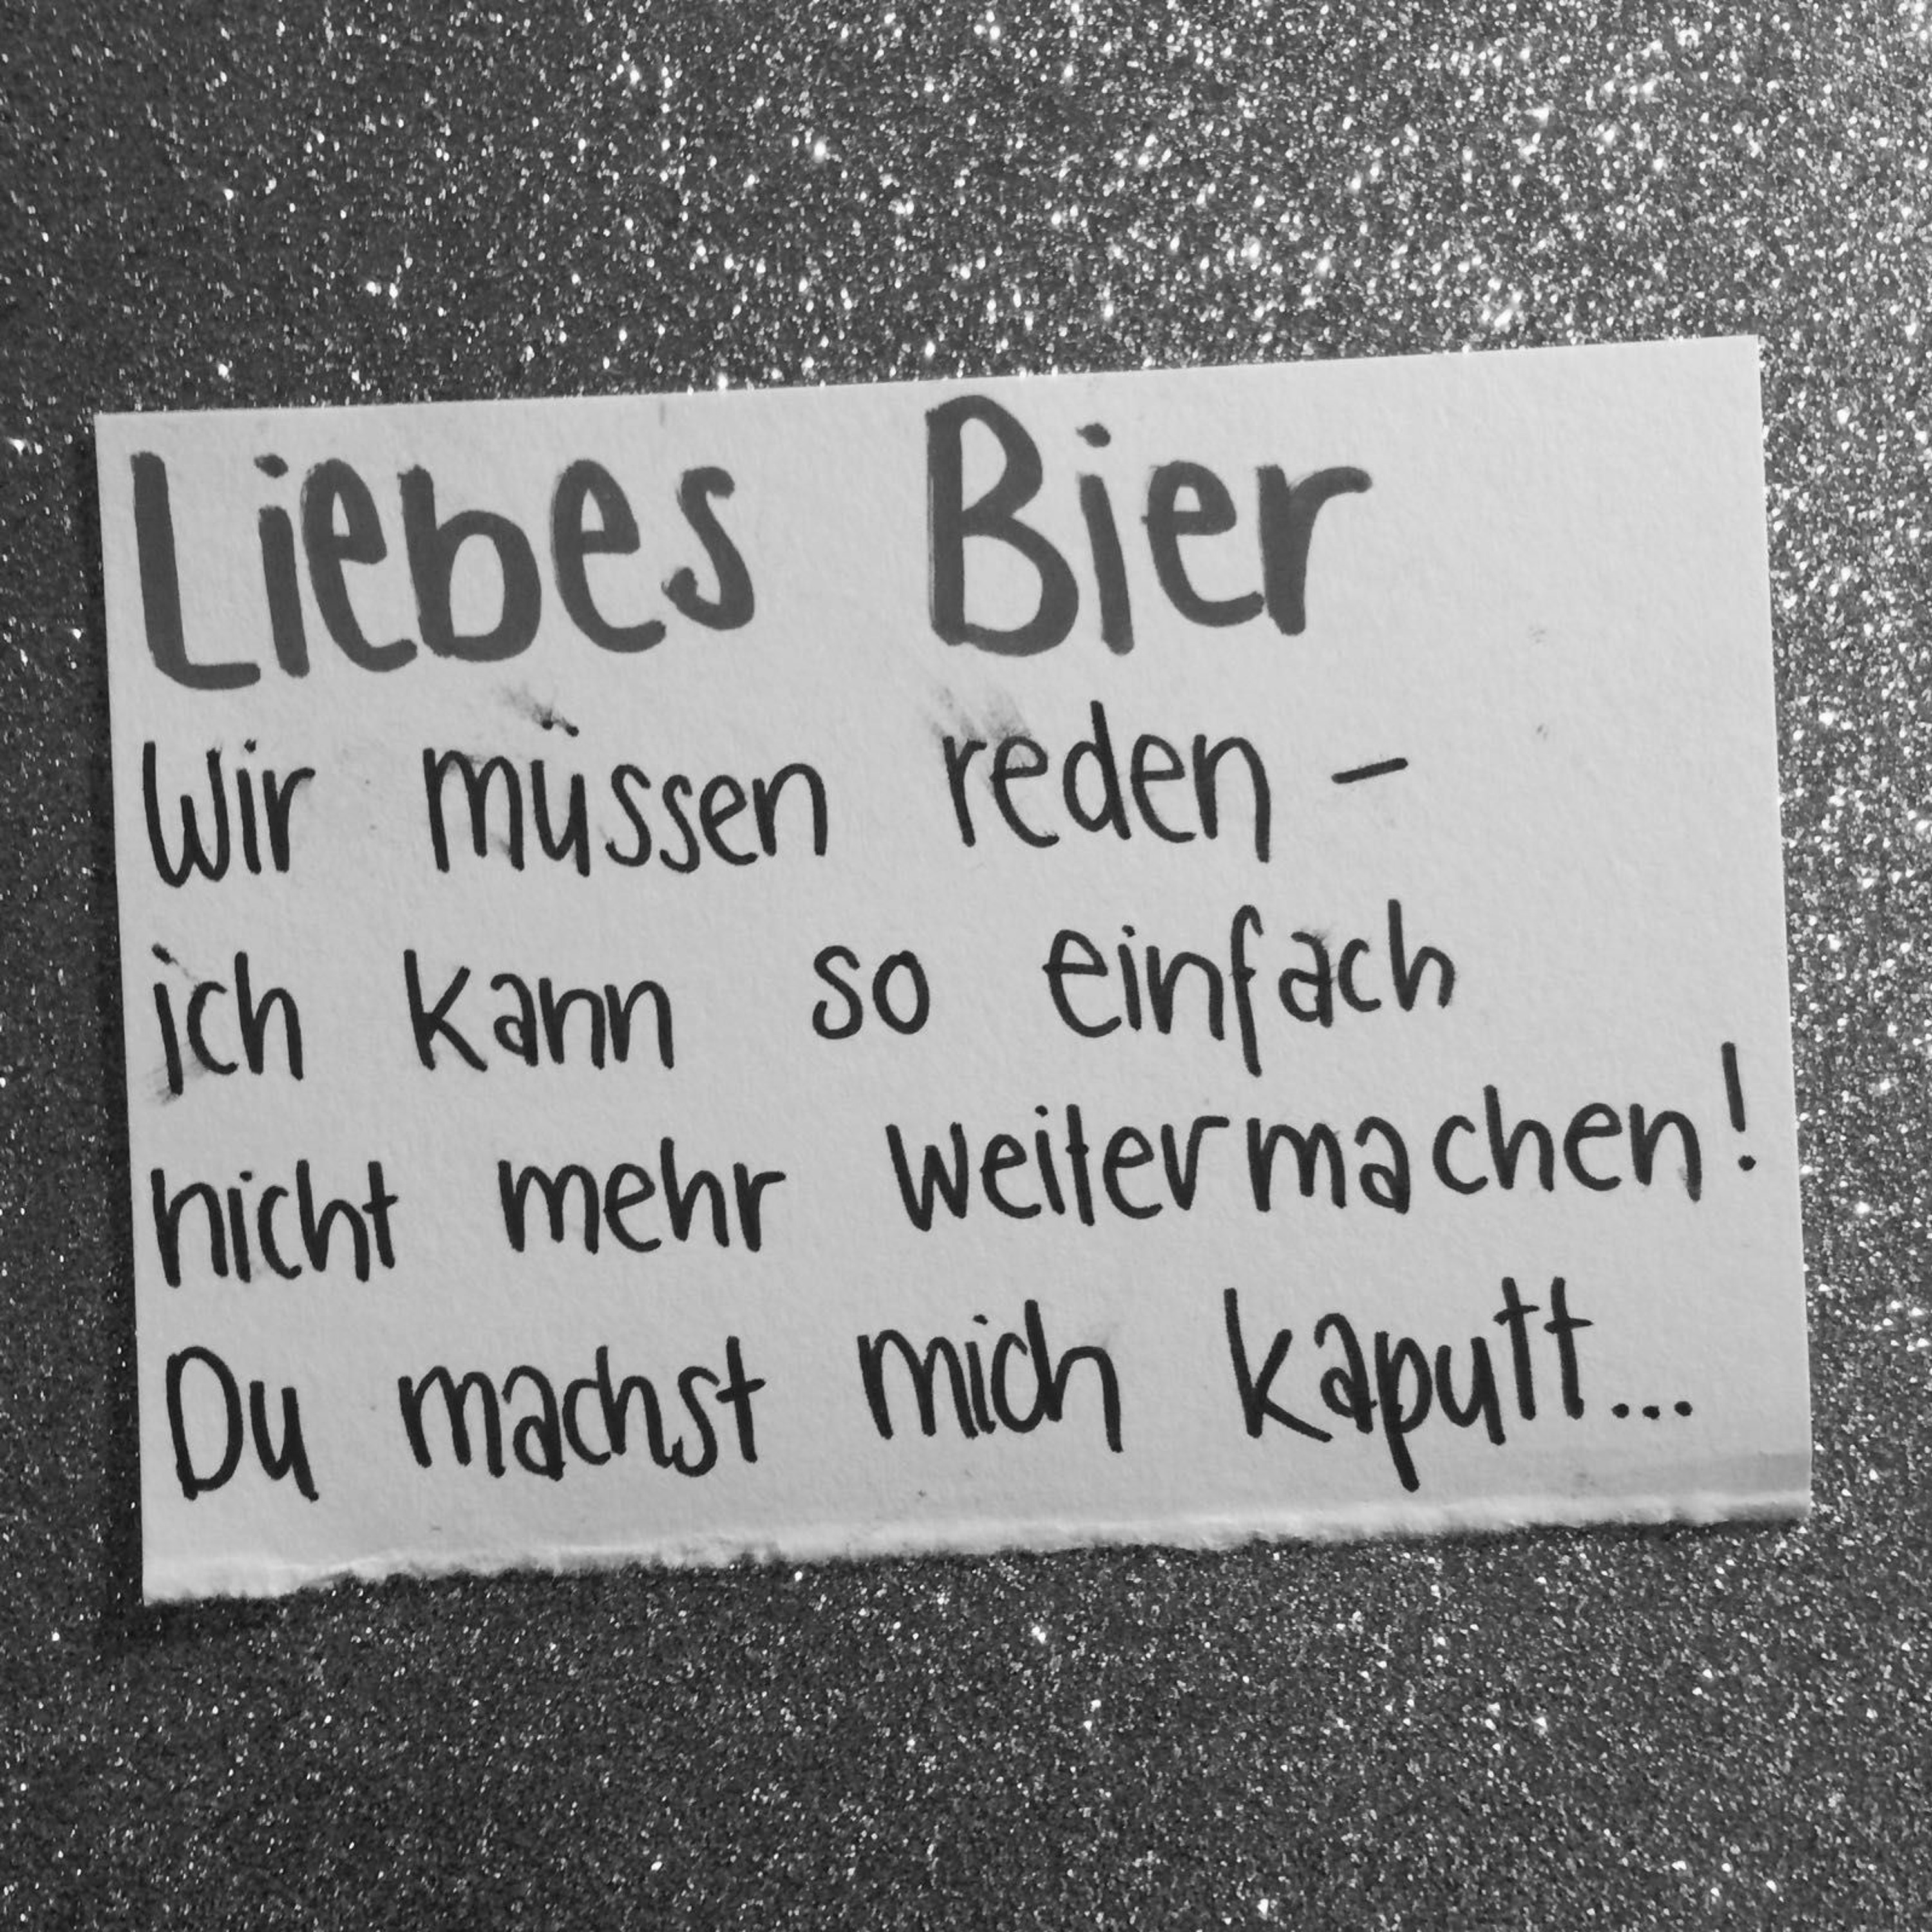 Liebes Bier
Wir müssen reden -
ich kann so einfach
nicht mehr weitermachen!
Du machst mich kaputt...